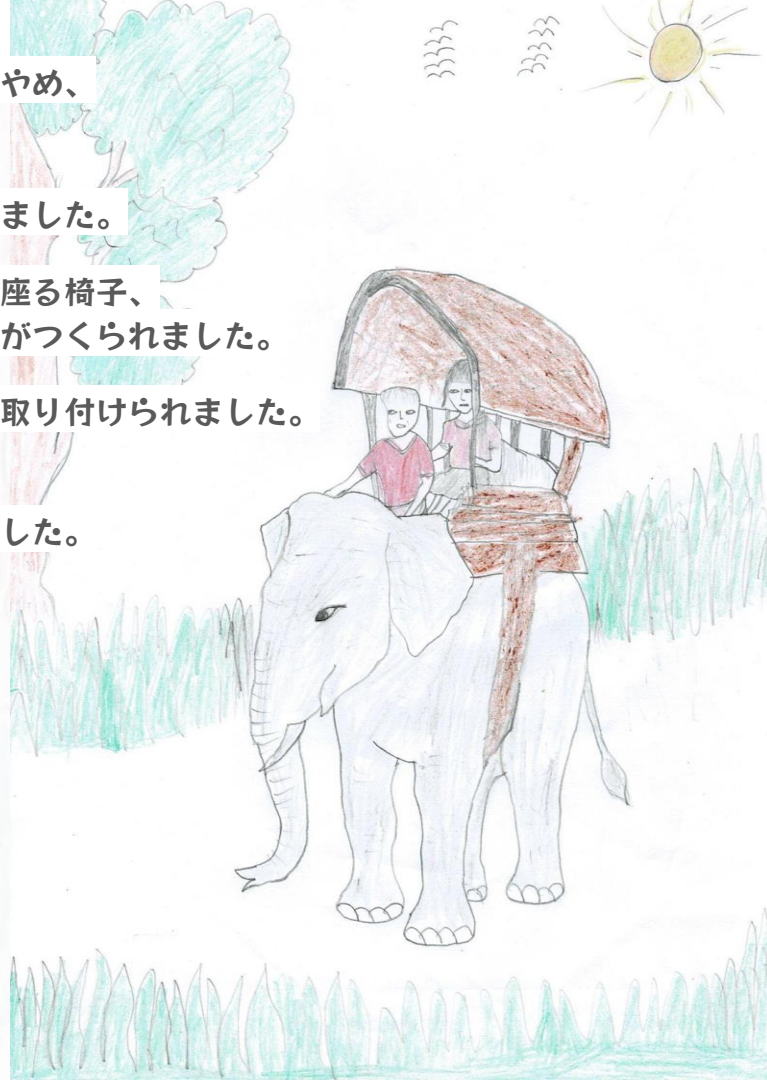 やめ、
ました。
座る椅子、
がつくられました。
取り付けられました。
した。